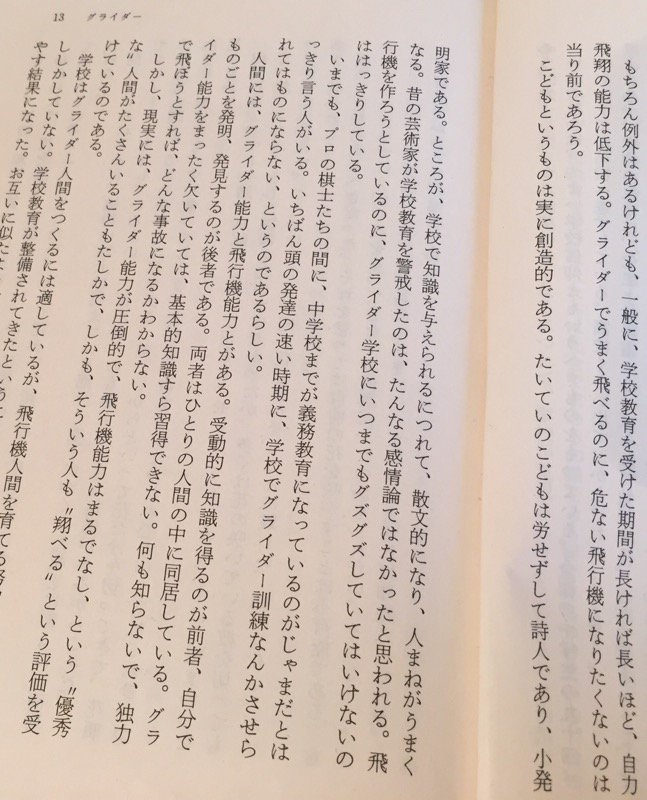 もちろん例外はあるけれども、一般に、学校教育を受けた期間が長ければ長いほど、自力
飛翔の能力は低下する。グライダーでうまく飛べるのに、危ない飛行機になりたくないのは
当り前であろう。
こどもというものは実に創造的である。たいていのこどもは労せずして詩人であり、小発
13 グライダー
明家である。ところが、学校で知識を与えられるにつれて、散文的になり、人まねがうまく
なる。昔の芸術家が学校教育を警戒したのは、たんなる感情論ではなかったと思われる。飛
行機を作ろうとしているのに、グライダー学校にいつまでもグズグズしていてはいけないの
ははっきりしている。
いまでも、プロの棋士たちの間に、中学校までが義務教育になっているのがじゃまだとは
っきり言う人がいる。いちばん頭の発達の速い時期に、学校でグライダー訓練なんかさせら
れてはものにならない、というのであるらしい。
人間には、グライダー能力と飛行機能力とがある。受動的に知識を得るのが前者、自分で
ものごとを発明、発見するのが後者である。両者はひとりの人間の中に同居している。グラ
イダー能力をまったく欠いていては、基本的知識すら習得できない。何も知らないで、独力
で飛ぼうとすれば、どんな事故になるかわからない。
しかし、現実には、グライダー能力が圧倒的で、飛行機能力はまるでなし、という〝優秀
な〟人間がたくさんいることもたしかで、しかも、そういう人も〝翔べる〟という評価を受
けているのである。
学校はグライダー人間をつくるには適しているが、飛行機人間を育てる努
ししかしていない。学校教育が整備されてきたということ
やす結果になった。お互いに似たよ